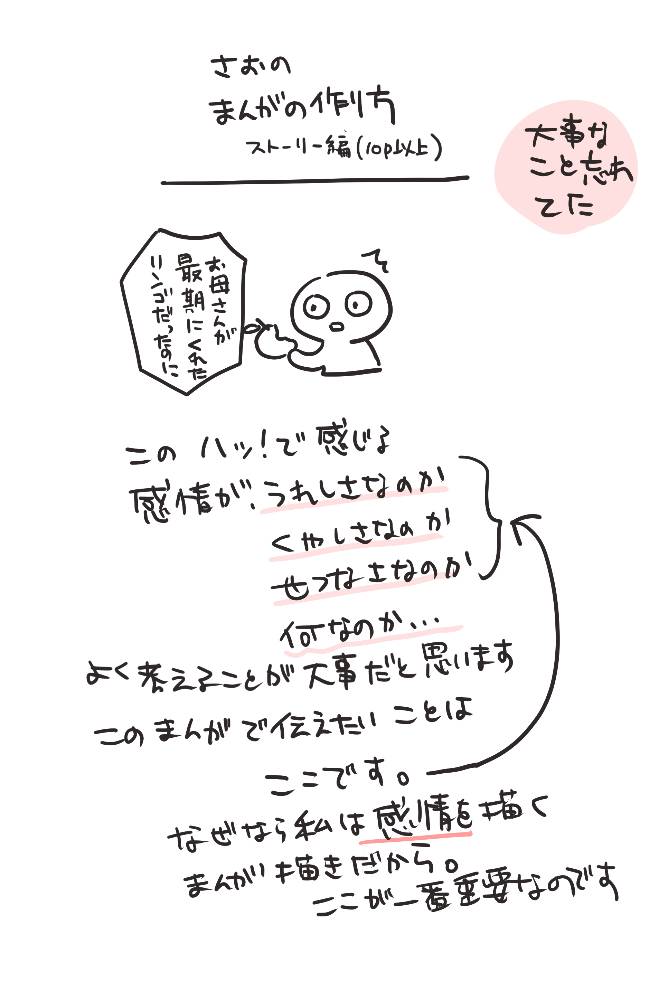 さおの
まんがの作り方
ストーリー編(10p以上)
大事な
こと忘れ
てた
お母さんが
最期にくれた
リンゴだったのに
この ハッ!で感じる
感情が、うれしさなのか
くやしさなのか
せつなさなのか
何なのか...
よく考えることが大事だと思います
このまんがで伝えたいことは
ここです。
なぜなら私は感情を描く
まんが描きだから。
ここが一番重要なのです